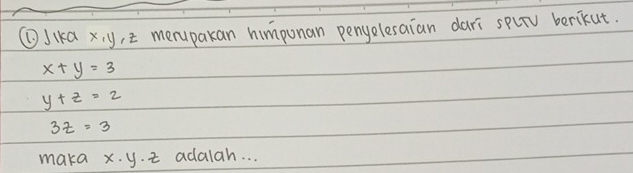 1. Jika x, y, z merupakan himpunan penyelesaian dari SPLTV berikut.
x + y = 3
y + z = 2
3z = 3
maka x . y . z adalah...